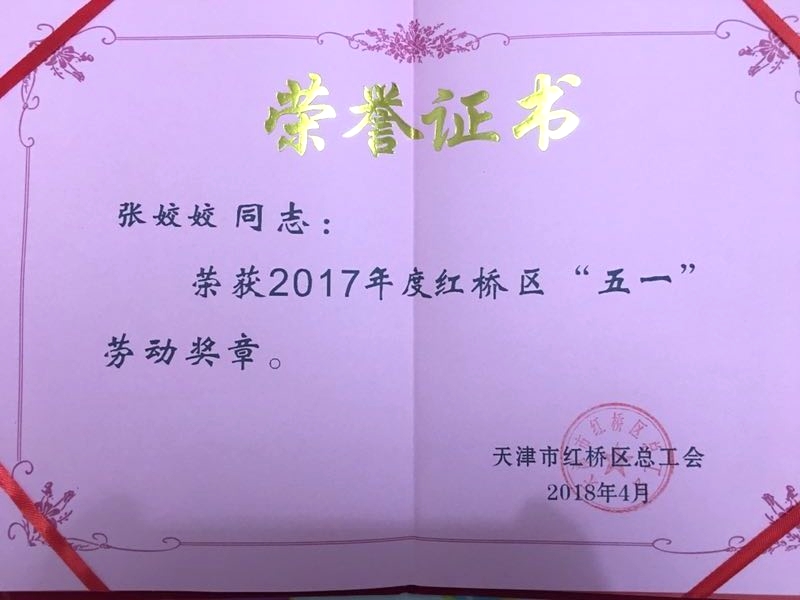 荣誉证书
张姣姣同志：
荣获2017年度红桥区“五一”
劳动奖章。
天津市红桥区总工会
2018年4月